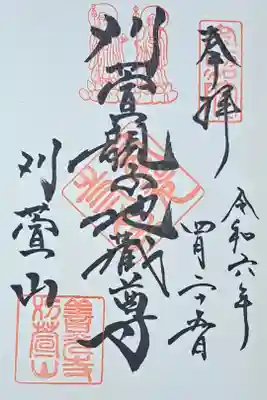 奉拝
令和六年
四月二十五日
刈萱親子地蔵尊
刈萱山